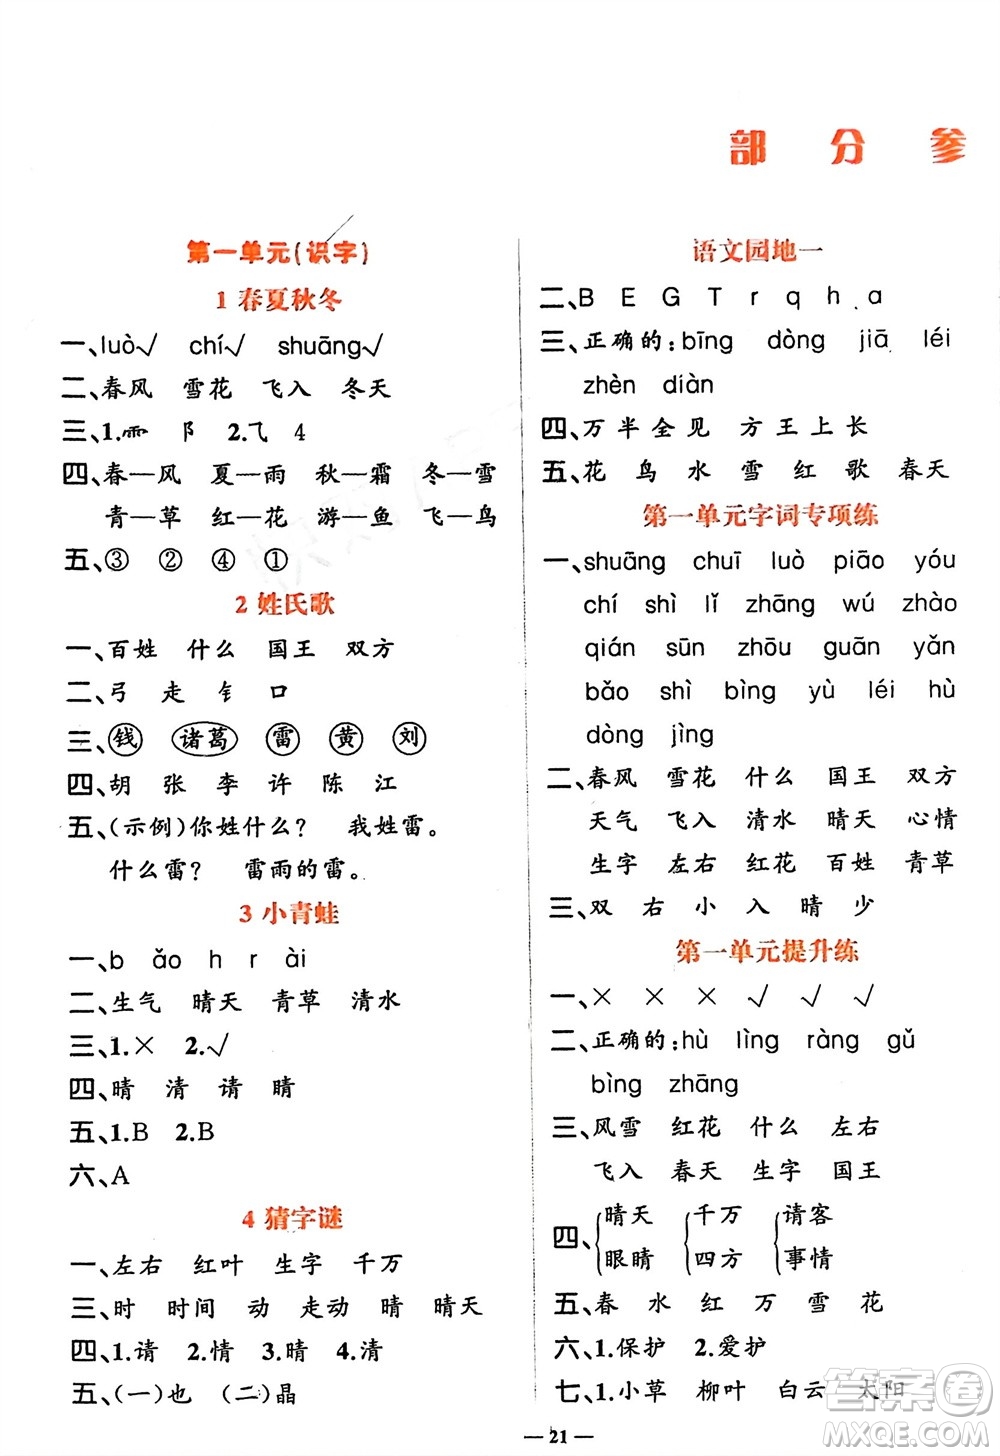 部 分 参
第一单元(识字)
1 春夏秋冬
一、luò√ chí√ shuāng√
二、春风 雪花 飞入 冬天
三、1.⻗ 阝 2.⺄ 4
四、春—风 夏—雨 秋—霜 冬—雪
青—草 红—花 游—鱼 飞—鸟
五、③ ② ④ ①
2 姓氏歌
一、百姓 什么 国王 双方
二、弓 走 钅 口
三、钱 诸葛 雷 黄 刘
四、胡 张 李 许 陈 江
五、(示例)你姓什么? 我姓雷。
什么雷? 雷雨的雷。
3 小青蛙
一、b ǎo h r ài
二、生气 晴天 青草 清水
三、1.× 2.√
四、晴 清 请 睛
五、1.B 2.B
六、A
4 猜字谜
一、左右 红叶 生字 千万
三、时 时间 动 走动 晴 晴天
四、1.请 2.情 3.晴 4.清
五、(一)也 (二)晶
语文园地一
二、B E G T r q h a
三、正确的:bīng dòng jiā léi
zhèn diàn
四、万 半 全 见 方 王 上 长
五、花 鸟 水 雪 红 歌 春天
第一单元字词专项练
一、shuāng chuī luò piāo yóu
chí shì lǐ zhāng wú zhào
qián sūn zhōu guān yǎn
bǎo shì bìng yù léi hù
dòng jìng
二、春风 雪花 什么 国王 双方
天气 飞入 清水 晴天 心情
生字 左右 红花 百姓 青草
三、双 右 小 入 晴 少
第一单元提升练
一、× × × √ √ √
二、正确的:hù lìng ràng gǔ
bìng zhāng
三、风雪 红花 什么 左右
飞入 春天 生字 国王
四、{晴天 {千万 {请客
眼睛 四方 事情
五、春 水 红 万 雪 花
六、1.保护 2.爱护
七、1.小草 柳叶 白云 太阳
21
答案圈
MXQE.COM